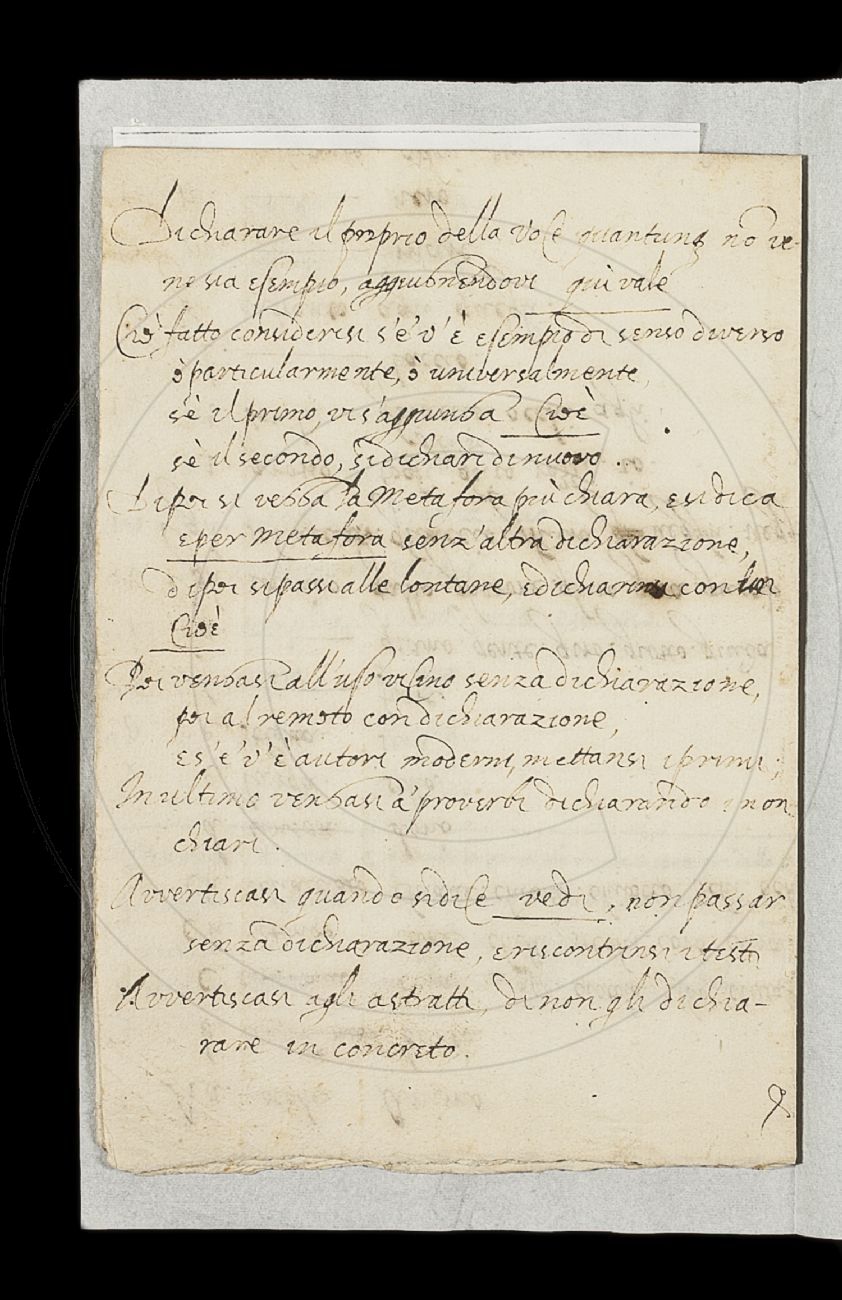 Dichiarare il proprio della voce quantunq no ve
ne sia esempio, aggiugnendovi qui vale
Ciò fatto considerisi s'e' v'è esempio di senso diverso
ò particularmente, ò universalmente,
s'è il primo, vi s'aggiunga Cioè
s'è il secondo, si dichiari di nuovo .
Dipoi si venga la Metafora più chiara, e si dica
e per Metafora senz'altra dichiarazione,
dipoi si passi alle lontane, e dichiarinsi con
Cioè
Poi vengasi all'uso vicino senza dichiarazione,
poi al remoto con dichiarazione,
e s'e' v'è autori moderni, mettansi i primi;
In ultimo vengasi a' proverbi dichiarando i non
chiari .
Avvertiscasi quando si dice vedi, non passar
senza dichiarazione, e riscontrinsi i testi
Avvertiscasi agli astratti, di non gli dichia-
rare in concreto.